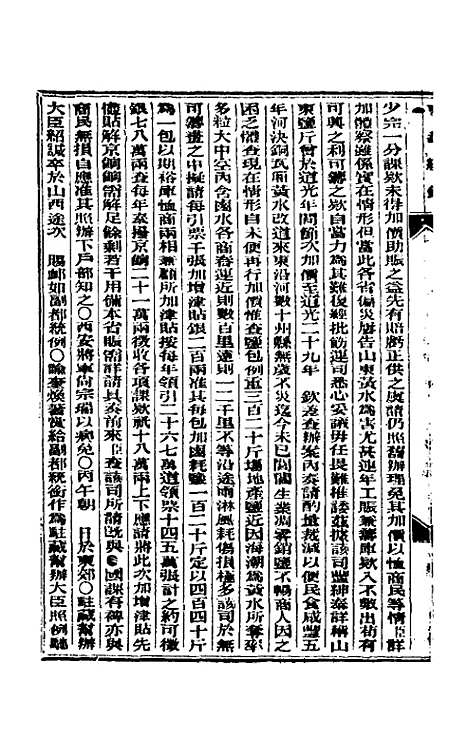 少完一分課欵未得加價助賑之益先有賠虧正供之虞請仍照舊辦理免其加價以恤商民等情臣詳
加體察雖係實在情形但當此各省偏災屢告山東黃水爲害尤甚連年工賑兼籌庫欵入不敷出苟有
可興之利可籌之欵自當力爲其難復經批飭運司悉心妥議毋任畏難推諉茲據該司豐紳泰詳稱山
東鹽斤曾於道光年間節次加價至道光二十九年 欽差查辦案內奏請酌量裁減以便民食咸豐五
年河決銅瓦廂黃水改道來東沿河數十州縣無歲不災迄今未已閭閻生業凋零銷鹽不暢商人因之
困乏體查現在情形自未便再行加價惟查鹽包例重三百二十斤塲地產鹽近因海潮爲黃水所奪率
多粒大中空內含鹵水各商春運近則數百里遠則一二千里不等沿途雨淋風耗傷損極多該司於無
可籌畫之中擬請每引票千張加增津貼銀二百兩准其每包加鹵耗鹽一百二十斤定以四百四十斤
爲一包以期裕庫恤商兩相兼顧所加津貼按每年領引二十六七萬道領票十四五萬張計之約可徵
銀七八萬兩查每年奉撥京餉二十一萬兩徵收各項課欵祇十八萬兩上下應請將此次加增津貼先
儘貼解京餉餉需解足餘剩若干用備本省賑需詳請具奏前來臣查該司所請旣與 國課有裨亦與
商民無損自應准其照辦下戶部知之〇西安將軍尚宗瑞以病免〇丙午朝 日於東郊〇駐藏幫辦
大臣紹諴卒於山西途次 賜卹如副都統例〇餘桒煥著賞給副都統銜作爲駐藏幫辦大臣照例馳